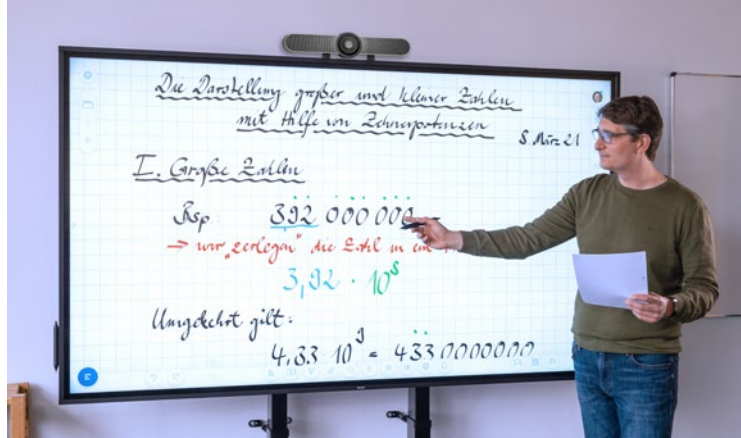 Die Darstellung großer und kleiner Zahlen
mit Hilfe von Zehnerpotenzen
8. März 21
I. Große Zahlen
Bsp. 392 000 000
→ wir „zerlegen“ die Zahl in ein
3,92 · 10⁸
Umgekehrt gilt:
4,33 · 10⁹ = 4330000000